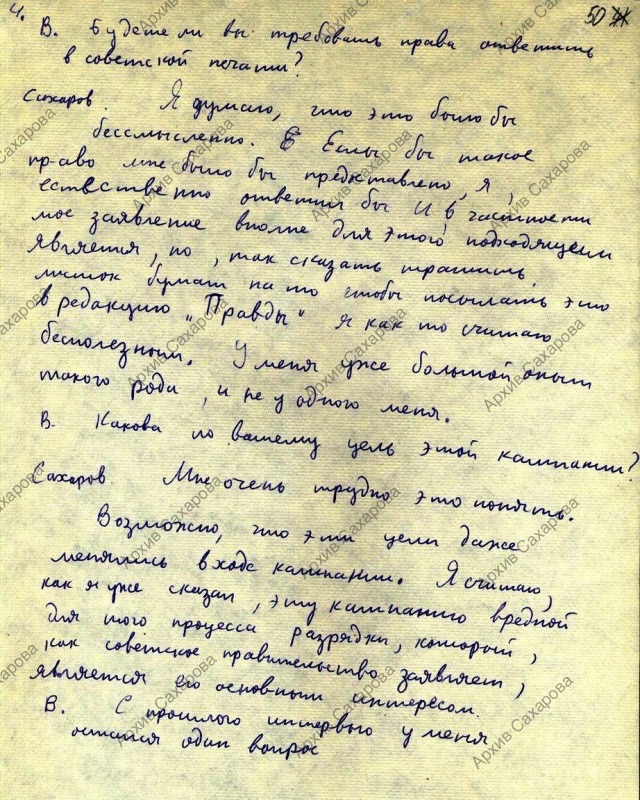 4.
50
В. Будете ли вы требовать права ответить
в советской печати?
Сахаров. Я думаю, что это было бы
бессмысленно. Если бы такое
право мне было бы предоставлено, я,
естественно ответил бы И в частности
мое заявление вполне для этого подходящим
является, но, так сказать тратить
листок бумаги на то чтобы посылать это
в редакцию „Правды" я как то считаю
бесполезным. У меня уже большой опыт
такого рода, и не у одного меня.
В. Какова по вашему цель этой кампании?
Сахаров. Мне очень трудно это понять.
Возможно, что эти цели даже
менялись в ходе кампании. Я считаю,
как я уже сказал, эту кампанию вредной
для того процесса разрядки, который,
как советское правительство заявляет,
является его основным интересом.
В. С прошлого интервью у меня
остался один вопрос
Архив Сахарова